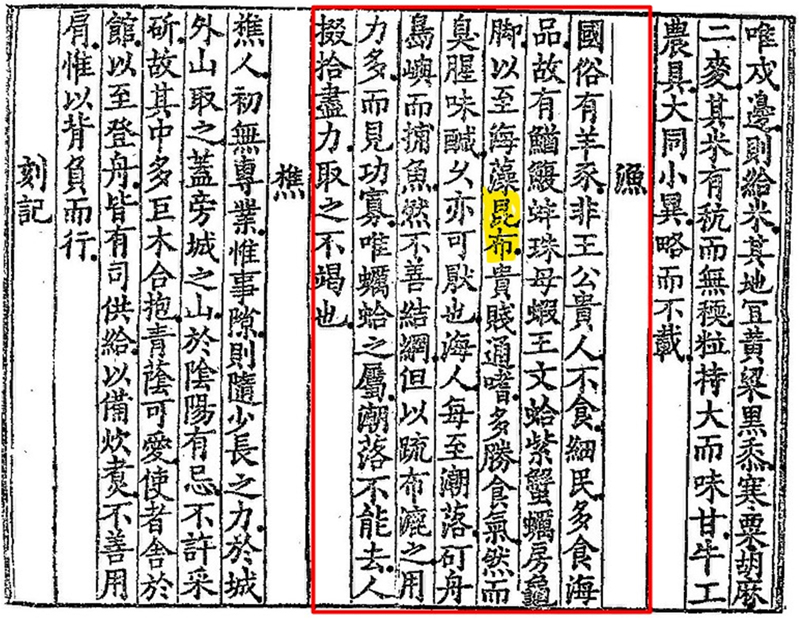 唯戍邊則給米其地宜黃粱黑黍寒粟胡麻
二麥其米有秔而無稬粒持大而味甘牛工
農具大同小異略而不載
漁
國俗有羊豕非王公貴人不食細民多食海
品故有鰌鰒蚌珠母蝦王文蛤紫蟹蠣房龜
脚以至海藻昆布貴賤通嗜多勝食氣然而
臭腥味鹹久亦可猒也海人每至潮落矴舟
島嶼而捕魚然不善結網但以疏布漉之用
力多而見功寡唯蠣蛤之屬潮落不能去人
掇拾盡力取之不竭也
樵
樵人初無專業惟事隙則隨少長之力於城
外山取之蓋旁城之山於陰陽有忌不許采
斫故其中多巨木合抱青蔭可愛使者舍於
館以至登舟皆有司供給以備炊煑不善用
肩惟以背負而行
刻記